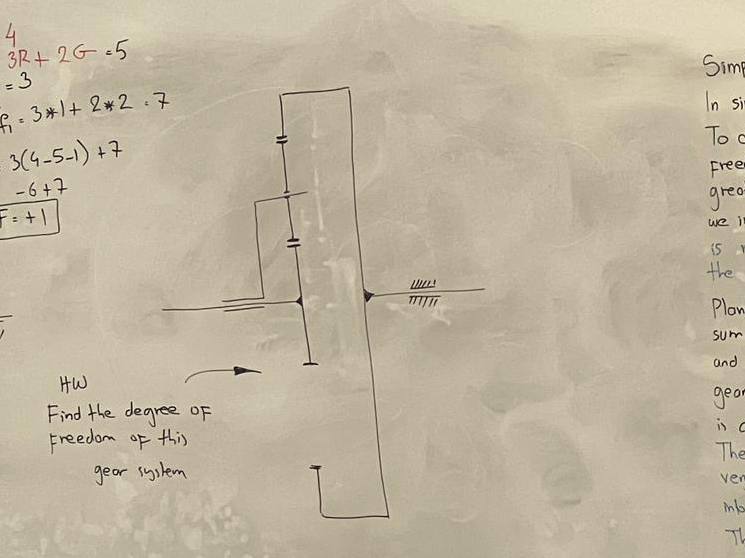 4
3R + 2G = 5
= 3
f₁ = 3*1 + 2*2 = 7
3(4-5-1) + 7
-6+7
F = +1
HW
Find the degree of
Freedom of this
gear system
Simp
In si
To c
Free
grea
we i
is
the
Plan
sum
and
gear
is c
The
ven
Th